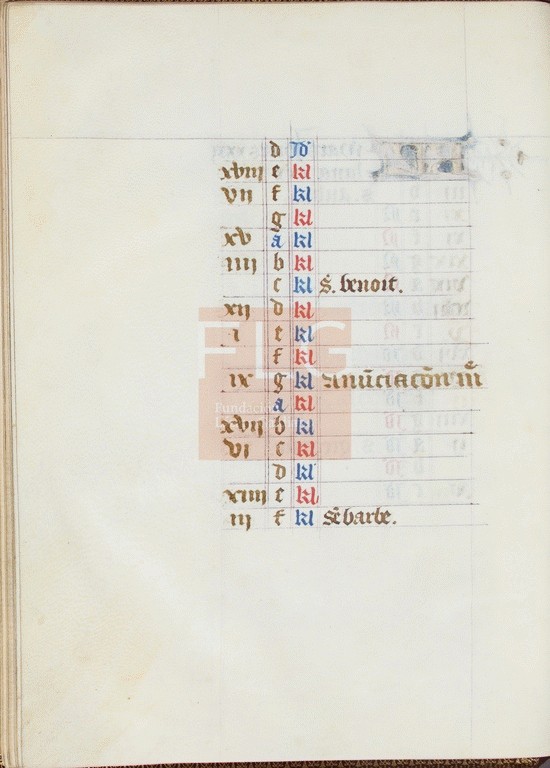 d Id
xviij e kl
vij f kl
g kl
xv a kl
iiij b kl
c kl S. benoit.
xij d kl
i e kl
f kl
ix g kl Anūciacōn
a kl
xvij b kl
vi c kl
d kl
xiiij e kl
iij f kl Sē barbe.
FLG